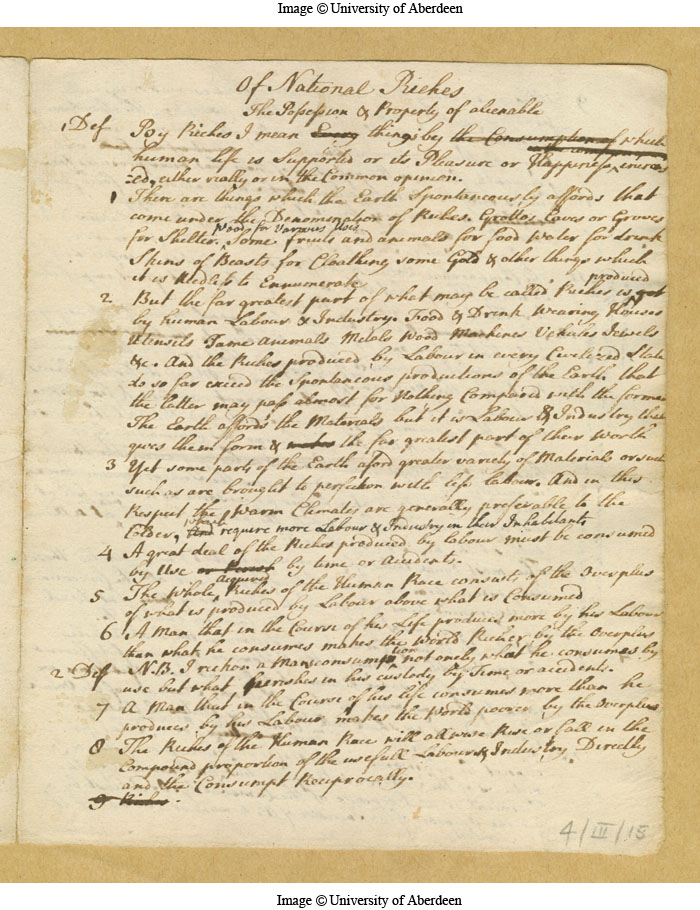 Image © University of Aberdeen
Of National Riches
The Possession & Property of alienable
1 Def By Riches I mean Every things by the Consumption of which
human life is Supported or its Pleasure or Happiness, increas
ed, either really or in the Common opinion.
1 There are things which the Earth Spontaneously affords that
come under the Denomination of Riches. Grottos Caves or Groves
Woods for Various Uses
for Shelter. Some fruits and animals for food Water for drink
Skins of Beasts for Cloathing some Gold & other things which
it is Needless to Ennumerate
produced
2 But the far greatest part of what may be called Riches is got
by human Labour & Industry. Food & Drink Wearing Houses
Utensils Tame Animals Metals Wood Machines Vehicles Jewels
&c. And the Riches produced by Labour in every Civelized State
do so far exceed the Spontaneous productions of the Earth that
the latter may pass almost for Nothing Compared with the former
The Earth affords the Materials but it is Labour & Industry that
gives them form & the far greatest part of their Worth
3 Yet some parts of the Earth aford greater variety of Materials or such
such as are brought to perfection with less labour. And in this
Respect the Warm Climates are generally preferable to the
Colder, And which require more Labour & Industry in their Inhabitants
4 A great deal of the Riches produced by labour must be consumed
by Use or Perish by time or Accidents.
acquired
5 The whole Riches of the Human Race consist of the Overplus
of what is produced by Labour above what is Consumed
6 A Man that in the Course of his Life produces more by his Labour
than what he consumes makes the World Richer by the Overplus
2 Def N.B. I reckon a Mans consumption not onely what he consumes by
use but what perishes in his custody by Time or accidents.
7 A Man that in the Course of his life consumes more than he
produces by his Labour makes the World poorer by the Overplus
8 The Riches of the Human Race will allwise Rise or fall in the
Compound proportion of the usefull Labour & Industry Directly
and the Consumpt Reciprocally.
9 Riches.
4/III/15
Image © University of Aberdeen